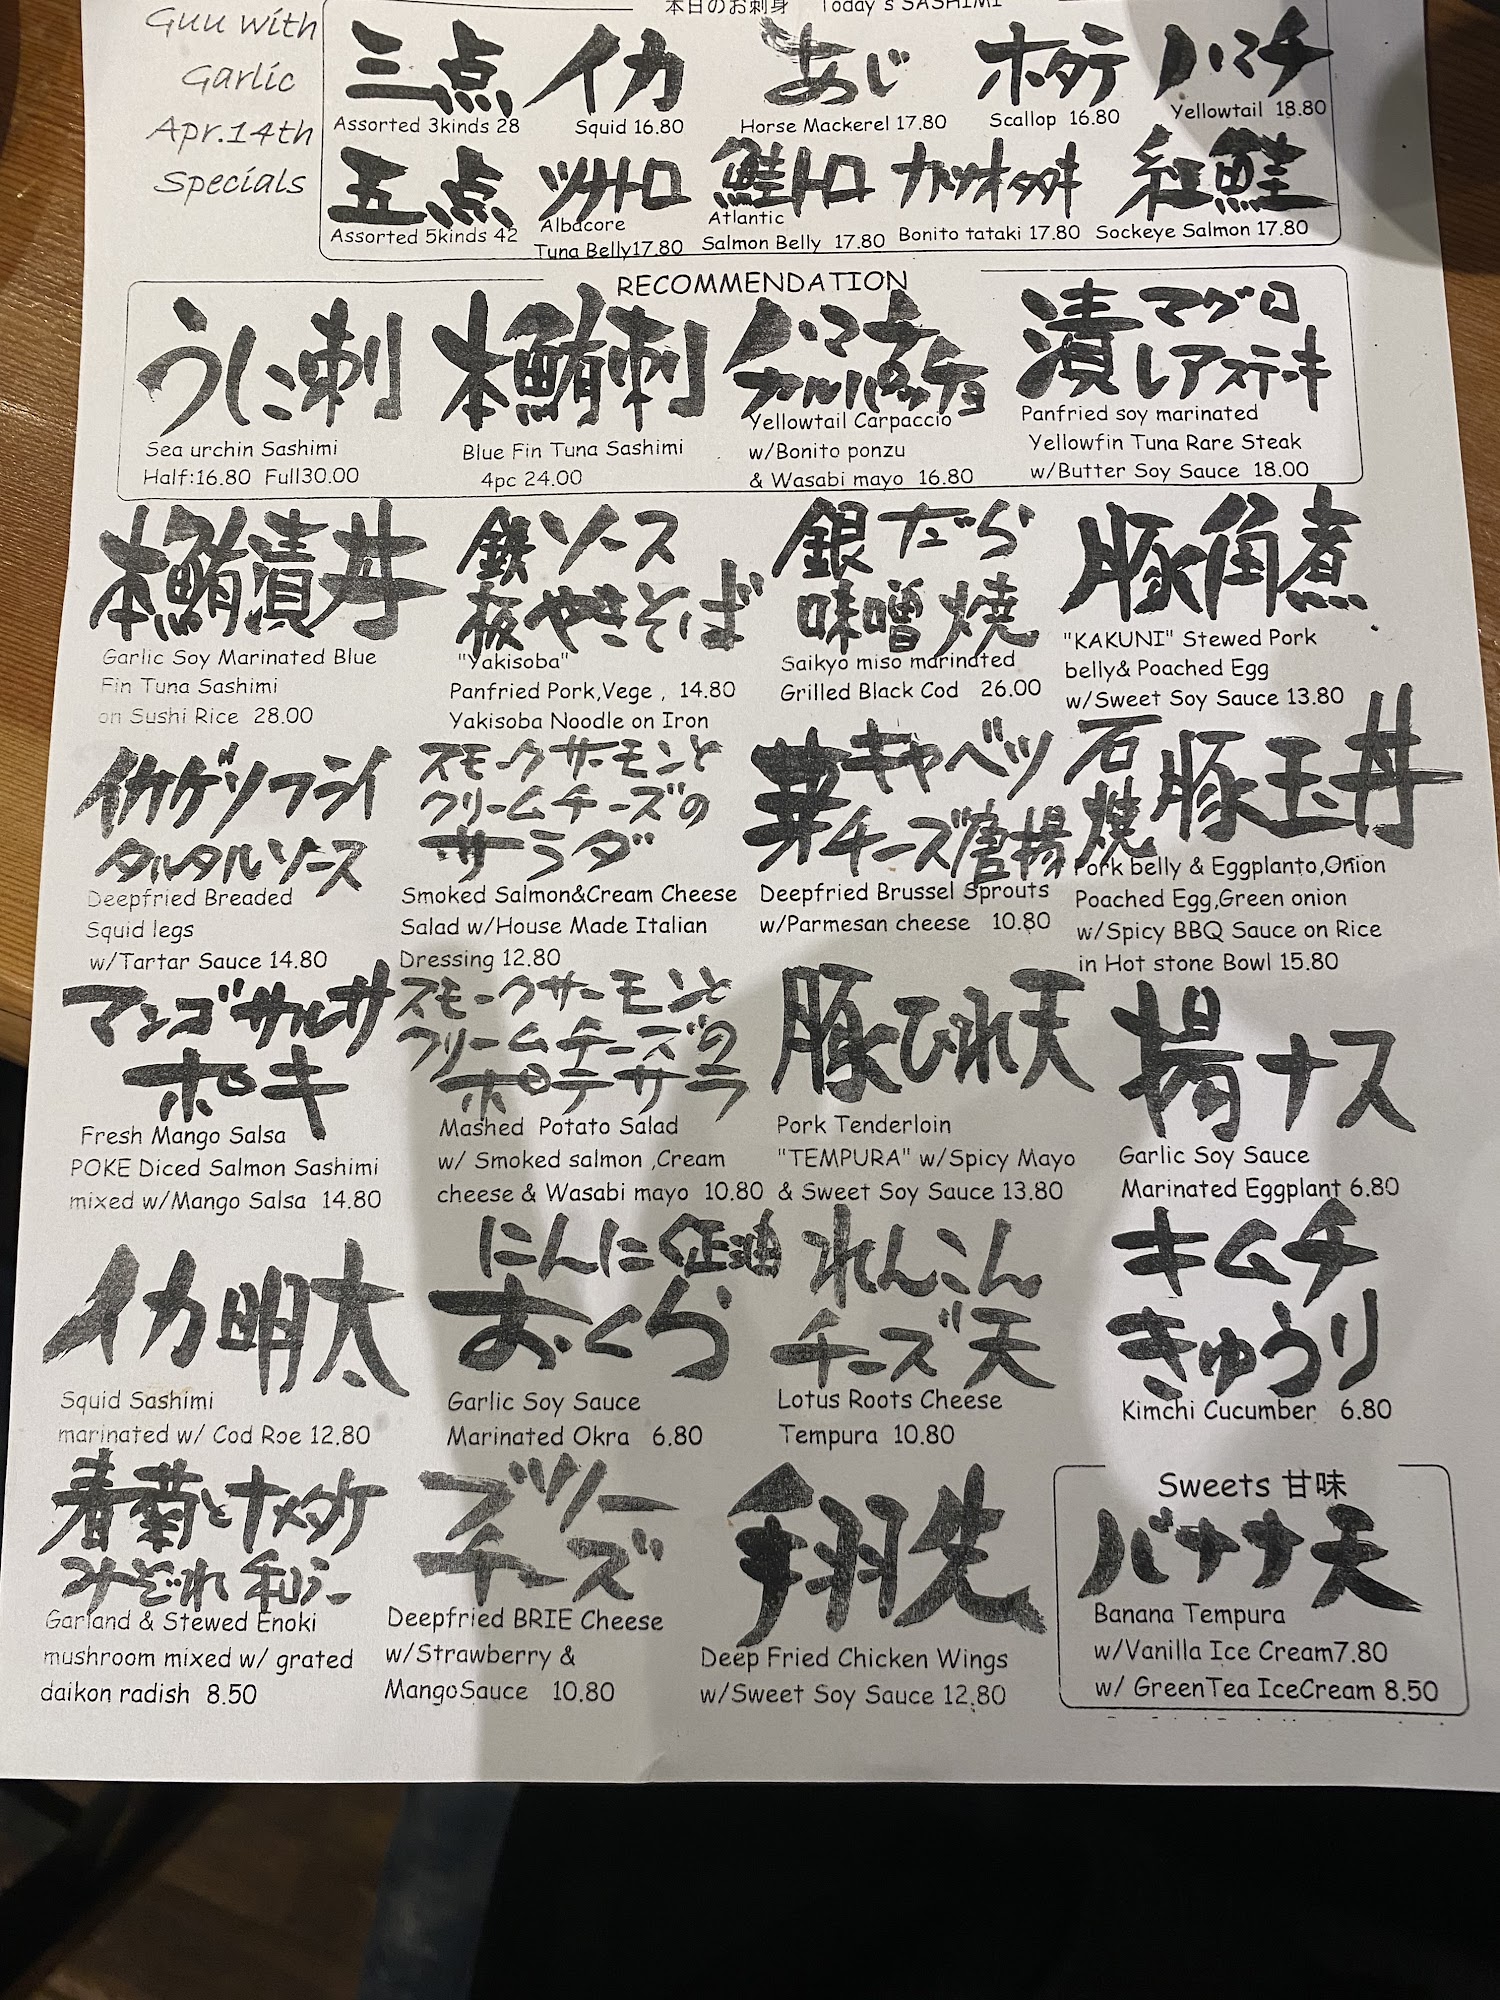 本日のお刺身 Today's SASHIMI
Guu with
Garlic
Apr.14th
Specials
三点
Assorted 3kinds 28
イカ
Squid 16.80
あじ
Horse Mackerel 17.80
ホタテ
Scallop 16.80
ハマチ
Yellowtail 18.80
五点
Assorted 5kinds 42
ツナトロ
Albacore
Tuna Belly17.80
鮭トロ
Atlantic
Salmon Belly 17.80
カツオタタキ
Bonito tataki 17.80
紅鮭
Sockeye Salmon 17.80
RECOMMENDATION
うに刺
Sea urchin Sashimi
Half:16.80 Full30.00
本鮪刺
Blue Fin Tuna Sashimi
4pc 24.00
ハマチ
カルパッチョ
Yellowtail Carpaccio
w/Bonito ponzu
& Wasabi mayo 16.80
漬マグロ
レアステーキ
Panfried soy marinated
Yellowfin Tuna Rare Steak
w/Butter Soy Sauce 18.00
本鮪漬丼
Garlic Soy Marinated Blue
Fin Tuna Sashimi
on Sushi Rice 28.00
鉄板ソース
やきそば
"Yakisoba"
Panfried Pork,Vege , 14.80
Yakisoba Noodle on Iron
銀だら
味噌焼
Saikyo miso marinated
Grilled Black Cod 26.00
豚角煮
"KAKUNI" Stewed Pork
belly& Poached Egg
w/Sweet Soy Sauce 13.80
イカゲソフライ
タルタルソース
Deepfried Breaded
Squid legs
w/Tartar Sauce 14.80
スモークサーモンと
クリームチーズの
サラダ
Smoked Salmon&Cream Cheese
Salad w/House Made Italian
Dressing 12.80
芽キャベツ
チーズ唐揚
Deepfried Brussel Sprouts
w/Parmesan cheese 10.80
石焼豚玉丼
Pork belly & Eggplanto,Onion
Poached Egg,Green onion
w/Spicy BBQ Sauce on Rice
in Hot stone Bowl 15.80
マンゴサルサ
ポキ
Fresh Mango Salsa
POKE Diced Salmon Sashimi
mixed w/Mango Salsa 14.80
スモークサーモンと
クリームチーズの
ポテサラ
Mashed Potato Salad
w/ Smoked salmon ,Cream
cheese & Wasabi mayo 10.80
豚ひれ天
Pork Tenderloin
"TEMPURA" w/Spicy Mayo
& Sweet Soy Sauce 13.80
揚ナス
Garlic Soy Sauce
Marinated Eggplant 6.80
イカ明太
Squid Sashimi
marinated w/ Cod Roe 12.80
にんにく正油
おくら
Garlic Soy Sauce
Marinated Okra 6.80
れんこん
チーズ天
Lotus Roots Cheese
Tempura 10.80
キムチ
きゅうり
Kimchi Cucumber 6.80
春菊とナメタケ
みぞれ和え
Garland & Stewed Enoki
mushroom mixed w/ grated
daikon radish 8.50
ブリー
チーズ
Deepfried BRIE Cheese
w/Strawberry &
MangoSauce 10.80
手羽先
Deep Fried Chicken Wings
w/Sweet Soy Sauce 12.80
Sweets 甘味
バナナ天
Banana Tempura
w/Vanilla Ice Cream7.80
w/ GreenTea IceCream 8.50